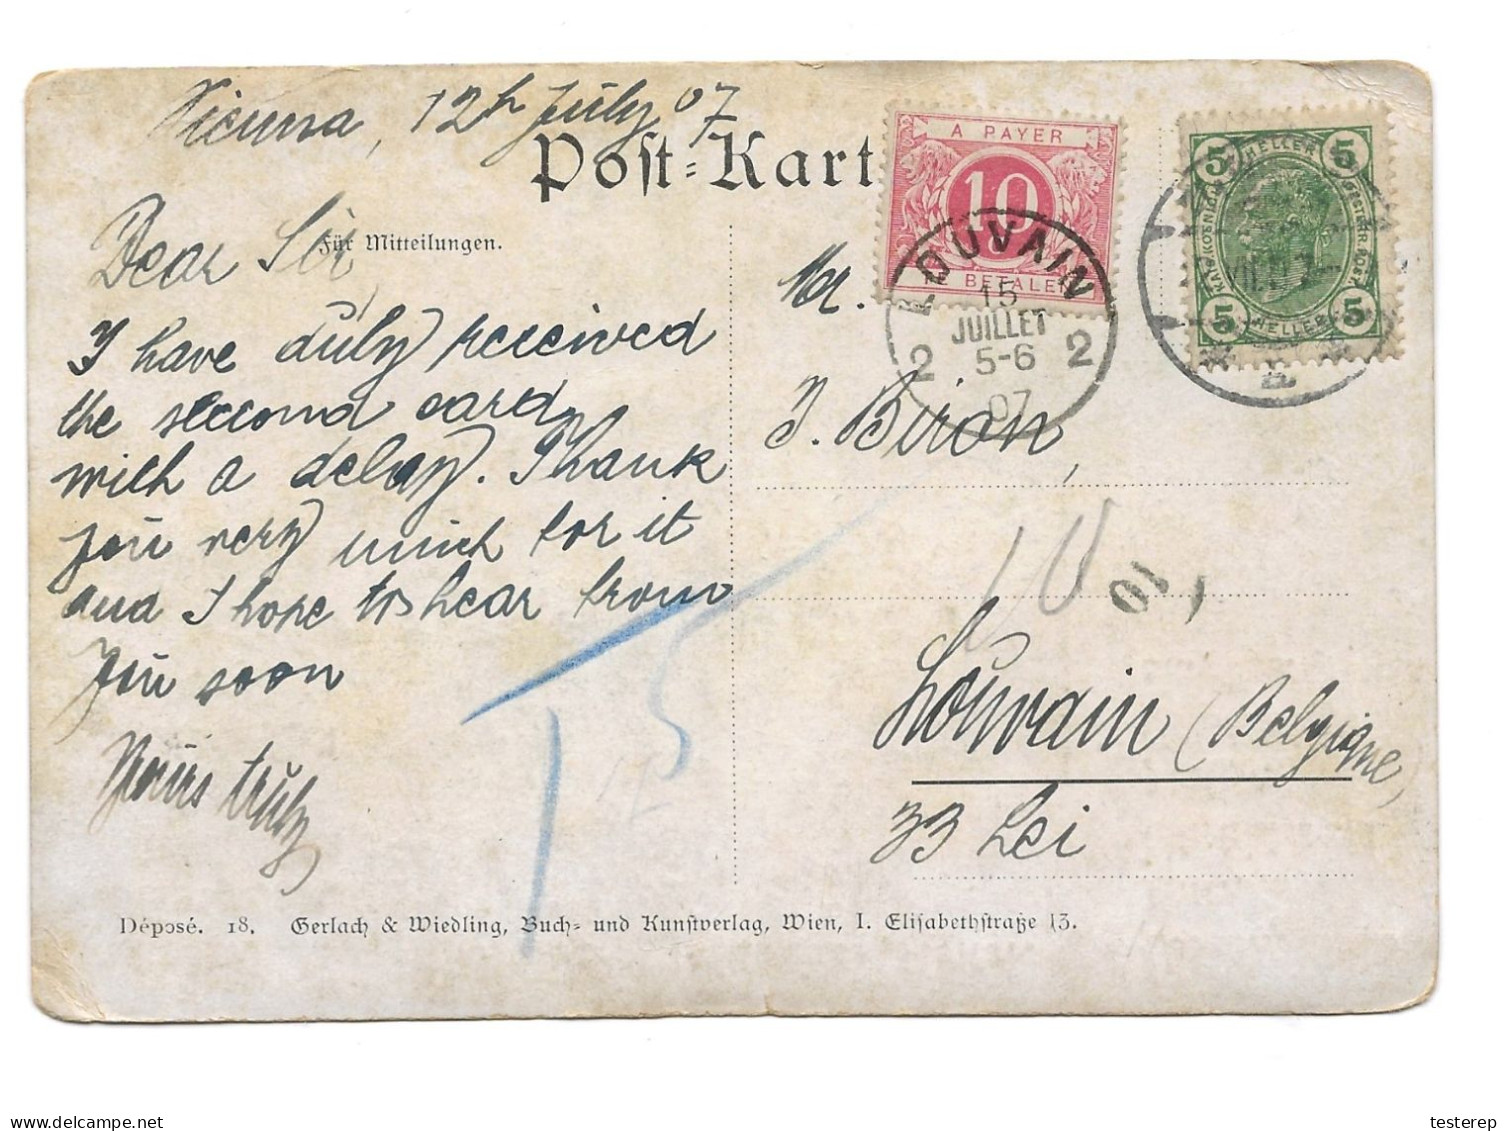 Vienna, 12h July 07
Post-Kart
Für Mitteilungen.
Dear Sir
I have duly received
the second card
with a delay. Thank
you very much for it
and I hope to hear from
you soon
Yours truly
A PAYER
10
TE BETALEN
LOUVAIN
15
JUILLET
5-6
07
2 2
5 HELLER 5
KAIS. KÖNIGL. ÖSTERR. POST
5 HELLER 5
Mr.
J. Biron,
10
10
T 5
Louvain (Belgique)
33 Lei
Déposé. 18. Gerlach & Wiedling, Buch- und Kunstverlag, Wien, I. Elisabethstraße 13.
testerep